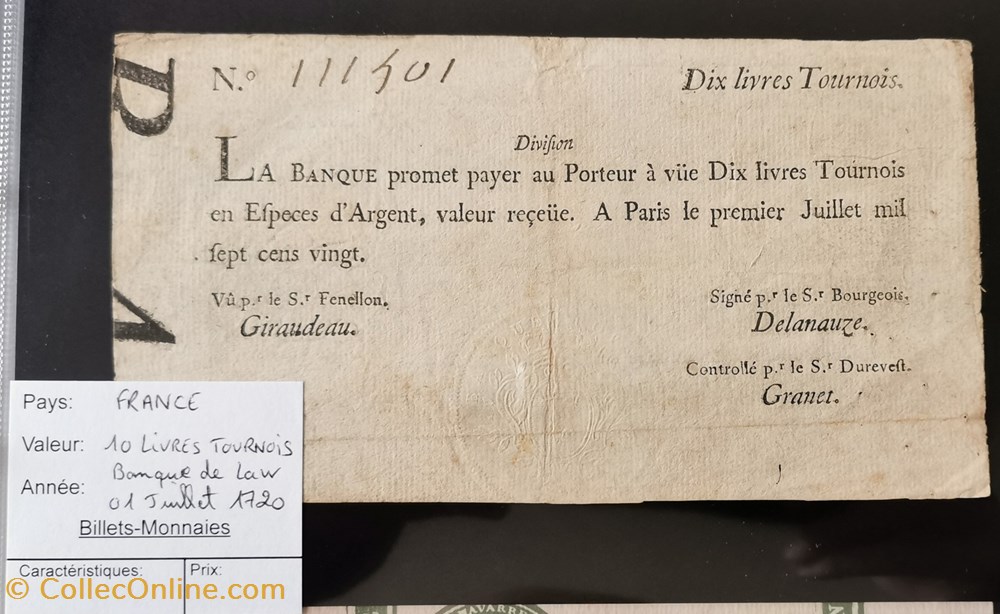 N.o 111501
Dix livres Tournois.
Diviſion
LA BANQUE promet payer au Porteur à vüe Dix livres Tournois
en Eſpeces d'Argent, valeur reçeüe. A Paris le premier Juillet mil
ſept cens vingt.
Vû p.r le S.r Fenellon.
Giraudeau.
Signé p.r le S.r Bourgeois.
Delanauze.
Controllé p.r le S.r Dureveſt.
Granet.
Pays: FRANCE
Valeur: 10 LIVRES TOURNOIS
Banque de Law
Année: 01 Juillet 1720
Billets-Monnaies
Caractéristiques:
Prix:
© CollecOnline.com
AVARRE